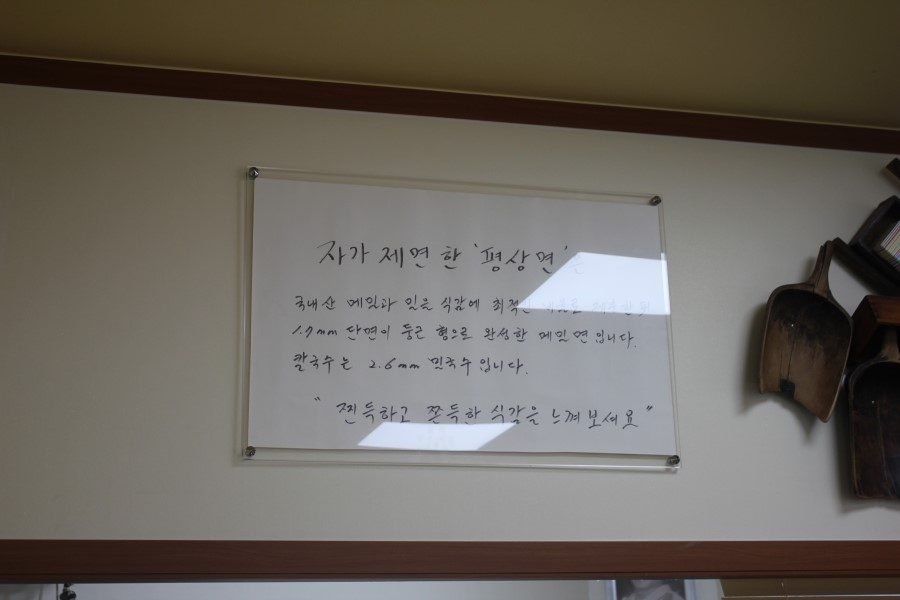 자가 제면 한 '평상면'은
국내산 메밀과 밀을 식감에 최적
1.7mm 단면이 둥근 형으로 완성한 메밀면입니다.
칼국수는 2.6mm 밀국수입니다.
" 찐득하고 쫀득한 식감을 느껴보세요 "